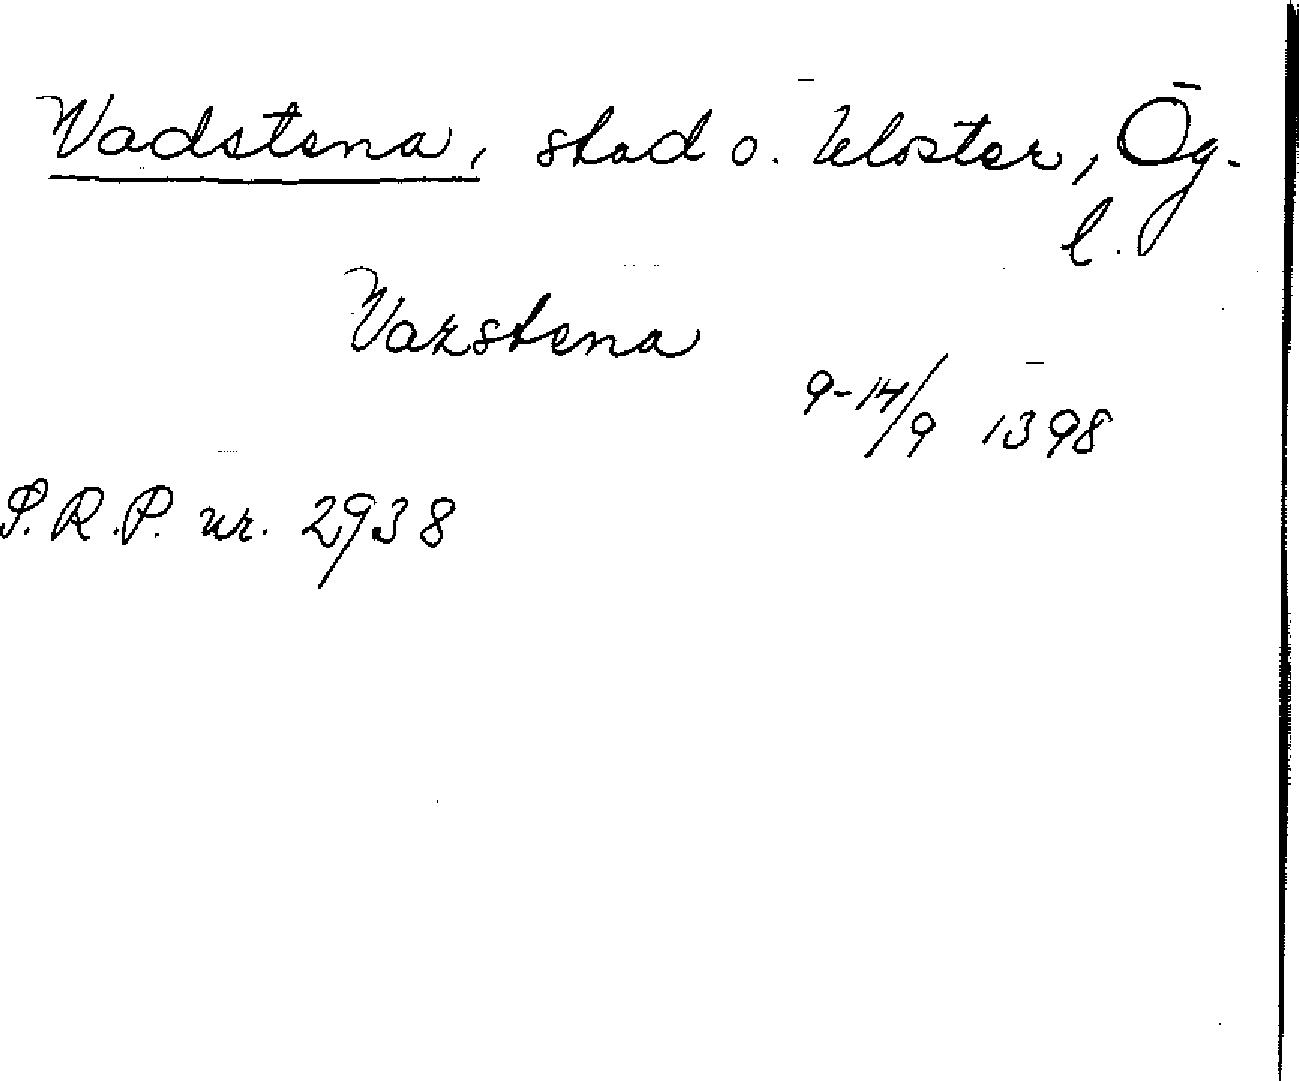 Vadstena, stad o. kloster, Ög.
l.
Vazstena
9-14/9 1398
P.R.P. nr. 2938